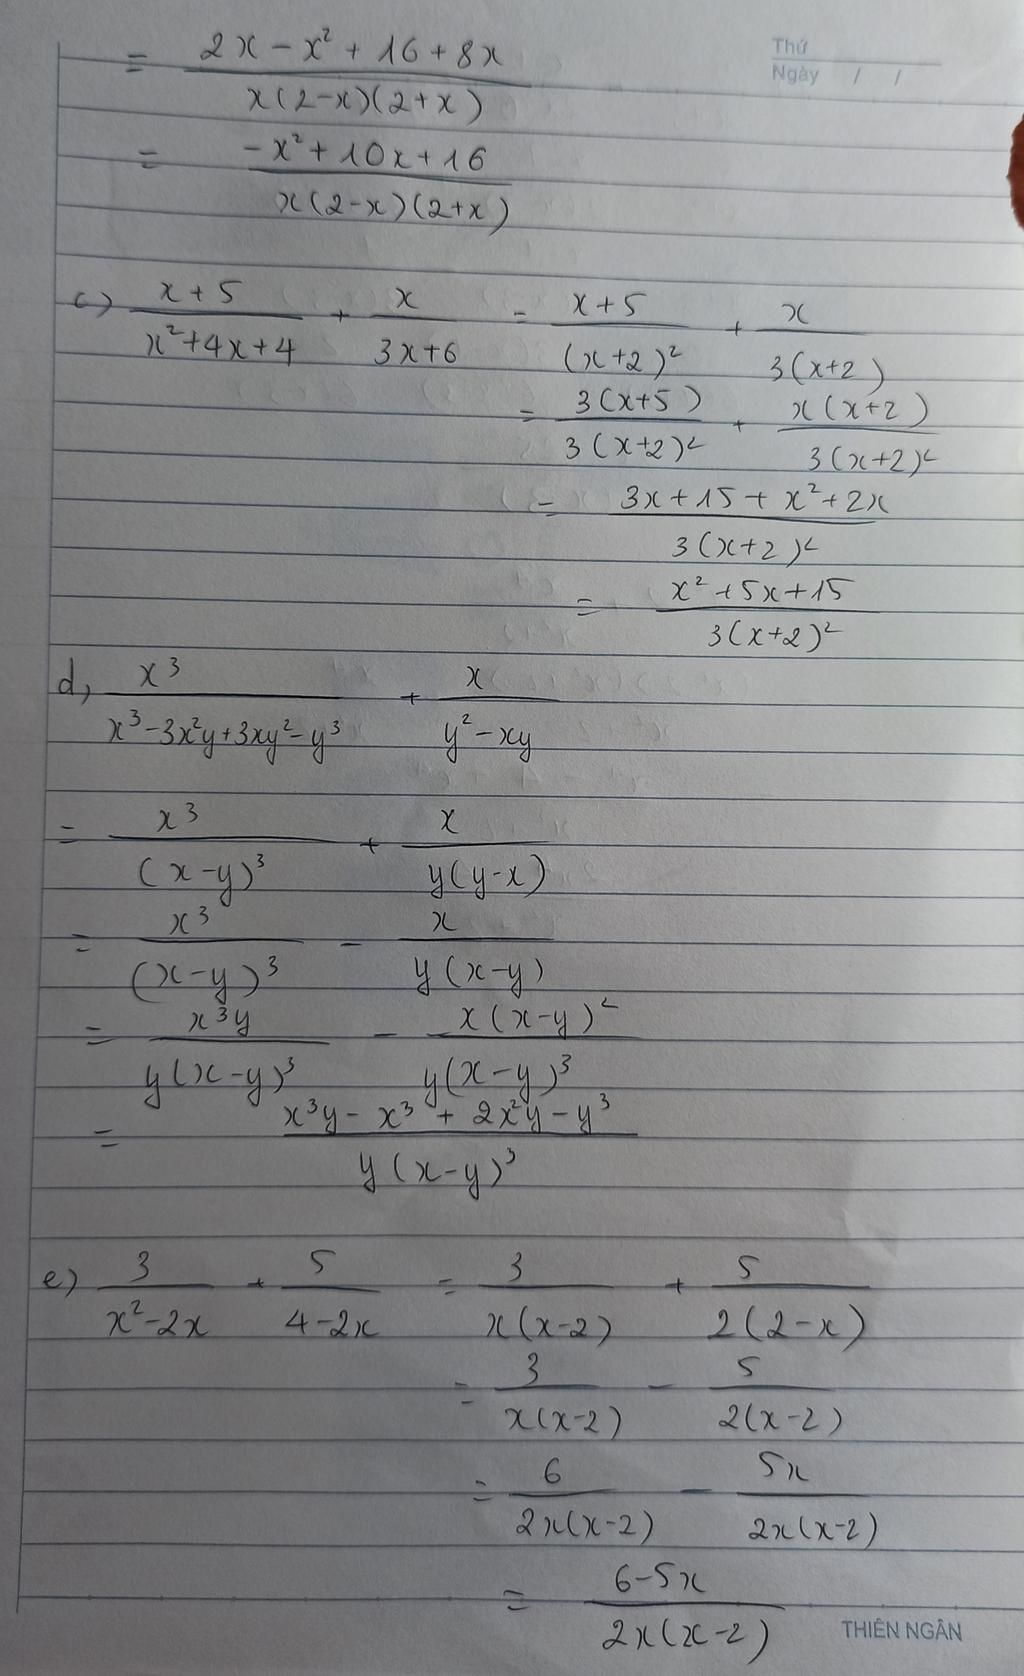 Thứ
Ngày / /
= (2x - x² + 16 + 8x) / (x(2-x)(2+x))
= (-x² + 10x + 16) / (x(2-x)(2+x))
c) (x+5)/(x²+4x+4) + x/(3x+6) = (x+5)/((x+2)²) + x/(3(x+2))
= 3(x+5)/(3(x+2)²) + x(x+2)/(3(x+2)²)
= (3x+15+x²+2x)/(3(x+2)²)
= (x²+5x+15)/(3(x+2)²)
d) x³/(x³-3x²y+3xy²-y³) + x/(y²-xy)
= x³/((x-y)³) + x/(y(y-x))
= x³/((x-y)³) - x/(y(x-y))
= x³y/(y(x-y)³) - x(x-y)²/(y(x-y)³)
= (x³y - x³ + 2x²y - y³)/(y(x-y)³)
e) 3/(x²-2x) + 5/(4-2x) = 3/(x(x-2)) + 5/(2(2-x))
= 3/(x(x-2)) - 5/(2(x-2))
= 6/(2x(x-2)) - 5x/(2x(x-2))
= (6-5x)/(2x(x-2))
THIÊN NGÂN